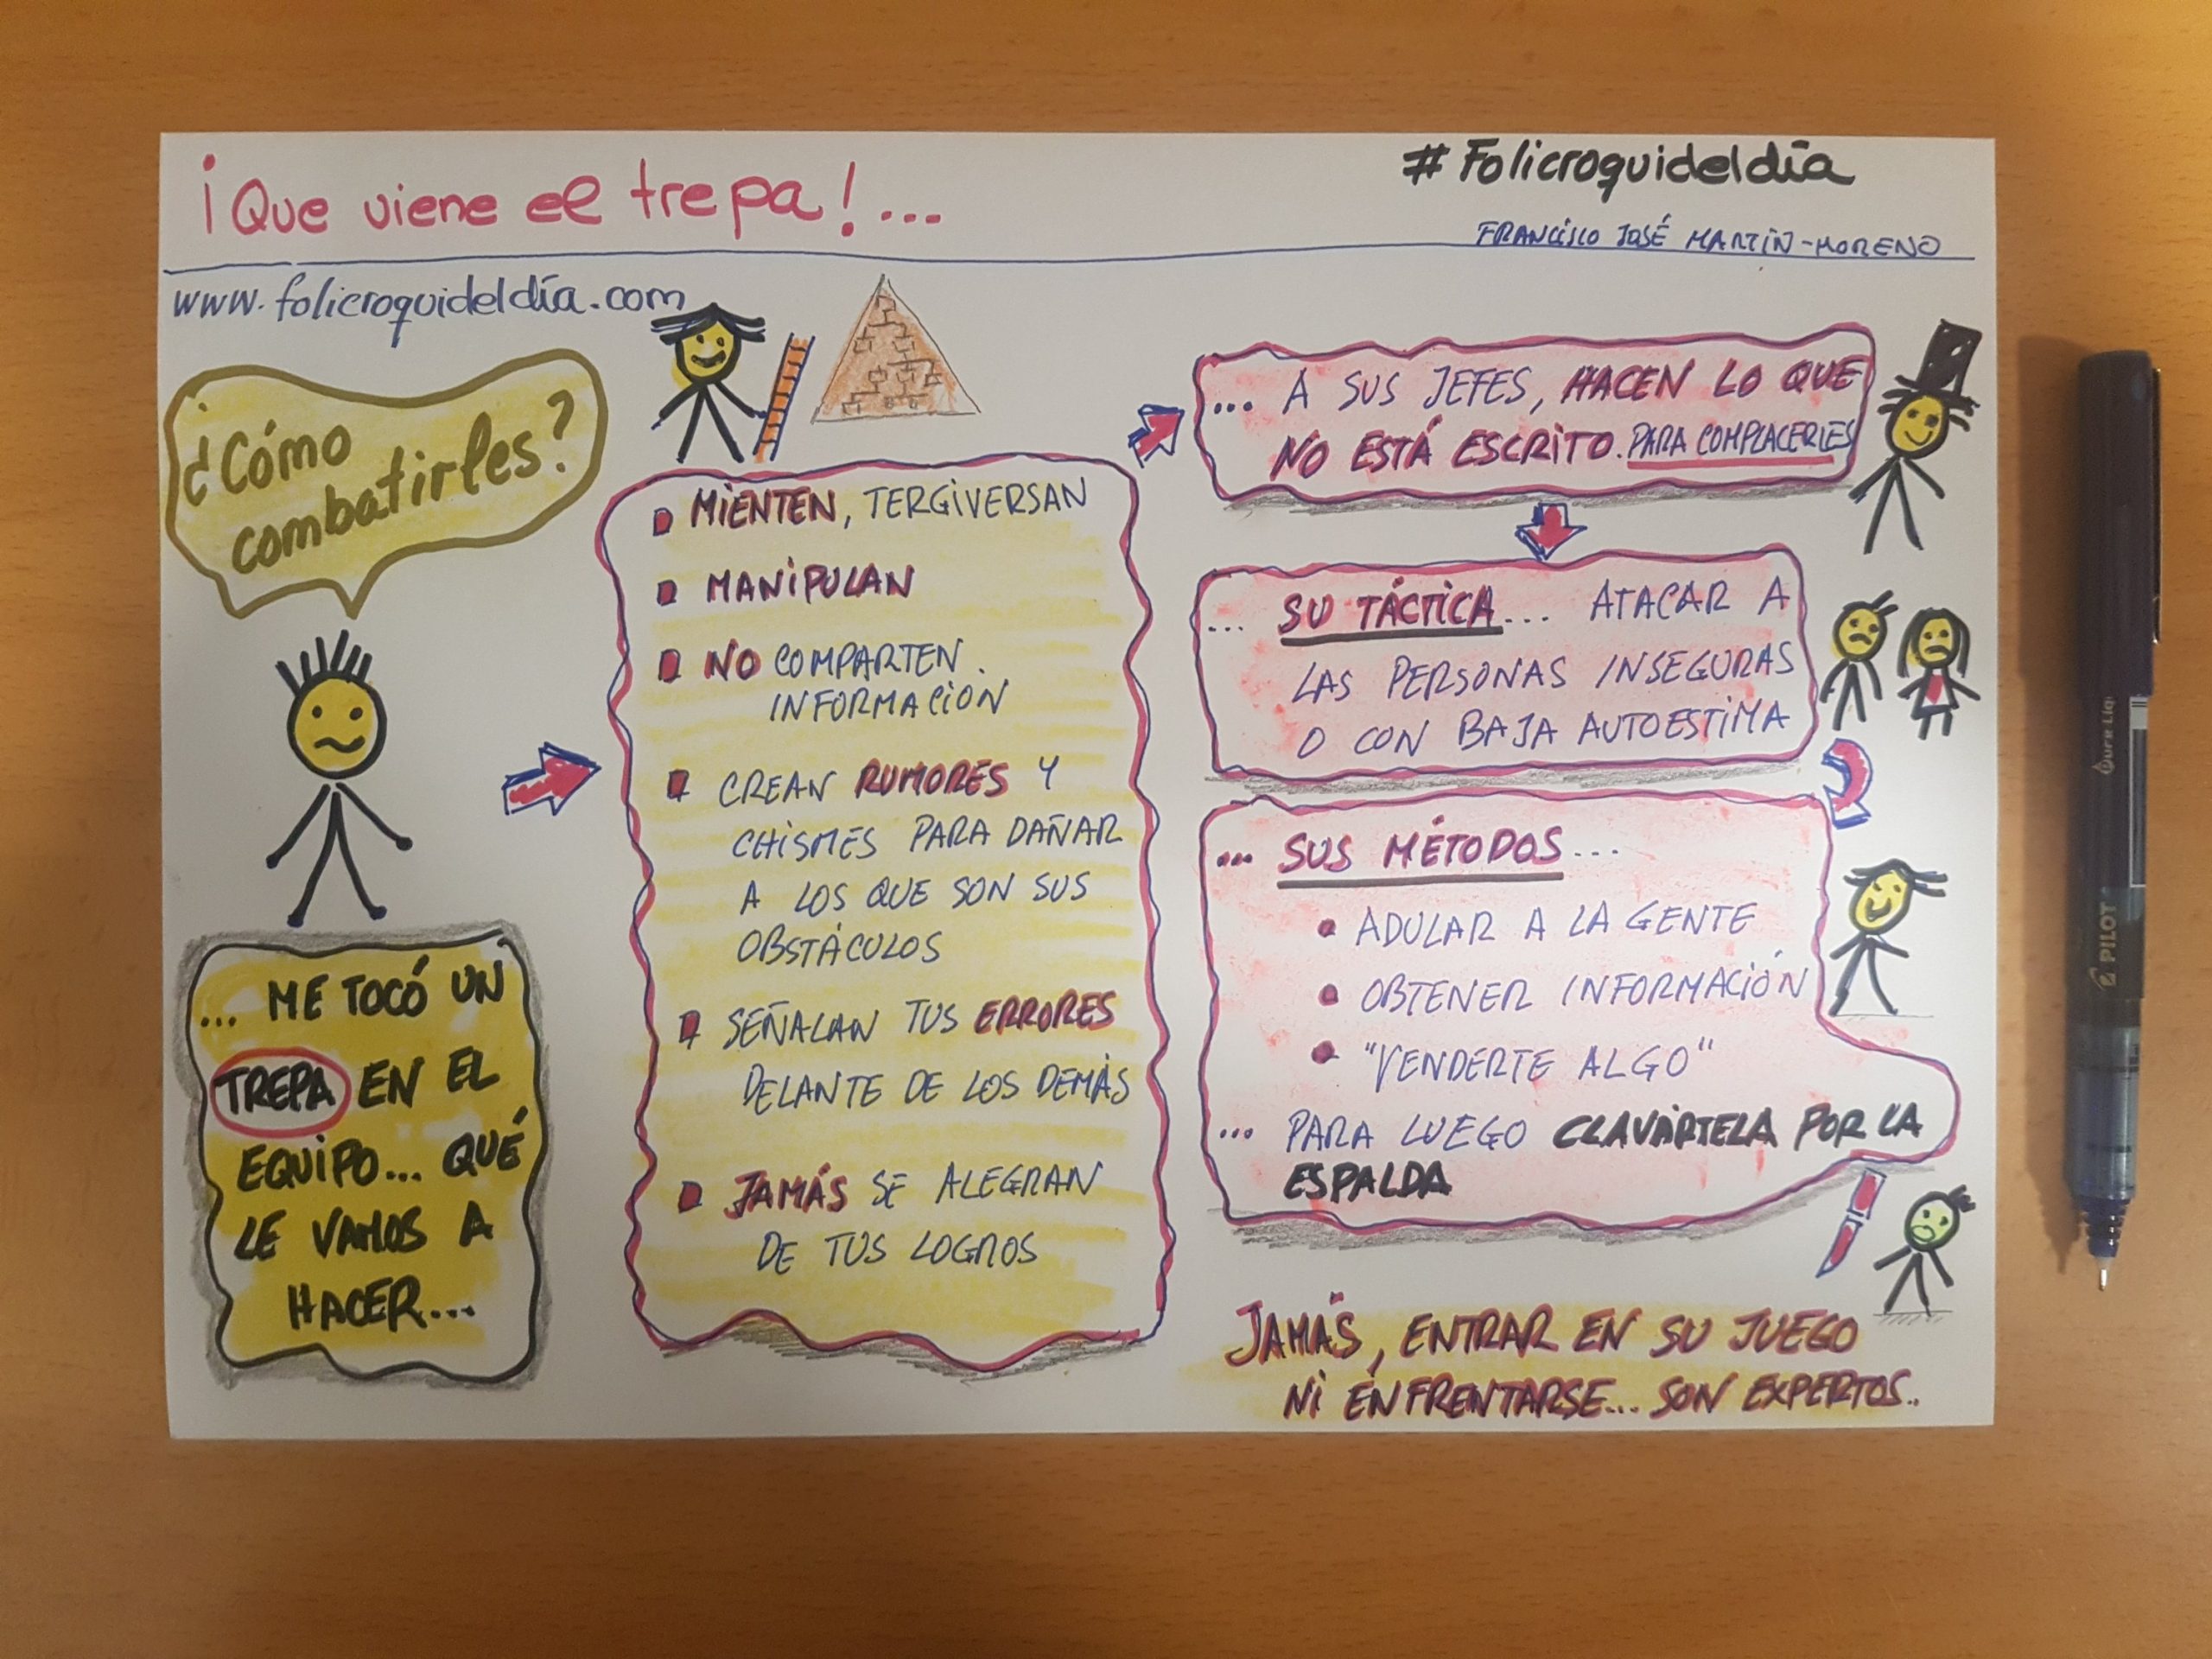 ¡Que viene el trepa!...
#Folicroquideldía
FRANCISCO JOSÉ MARTÍN-MORENO
www.folicroquideldía.com
¿Cómo
combatirles?
... ME TOCÓ UN
TREPA EN EL
EQUIPO... QUÉ
LE VAMOS A
HACER...
MIENTEN, TERGIVERSAN
MANIPULAN
NO COMPARTEN
INFORMACIÓN
CREAN RUMORES Y
CHISMES PARA DAÑAR
A LOS QUE SON SUS
OBSTÁCULOS
SEÑALAN TUS ERRORES
DELANTE DE LOS DEMÁS
JAMÁS SE ALEGRAN
DE TUS LOGROS
... A SUS JEFES, HACEN LO QUE
NO ESTÁ ESCRITO. PARA COMPLACERLES
... SU TÁCTICA... ATACAR A
LAS PERSONAS INSEGURAS
O CON BAJA AUTOESTIMA
... SUS MÉTODOS...
• ADULAR A LA GENTE
• OBTENER INFORMACIÓN
• "VENDERTE ALGO"
... PARA LUEGO CLAVÁRTELA POR LA
ESPALDA
JAMÁS, ENTRAR EN SU JUEGO
NI ENFRENTARSE... SON EXPERTOS..
PILOT
Pure Liqu